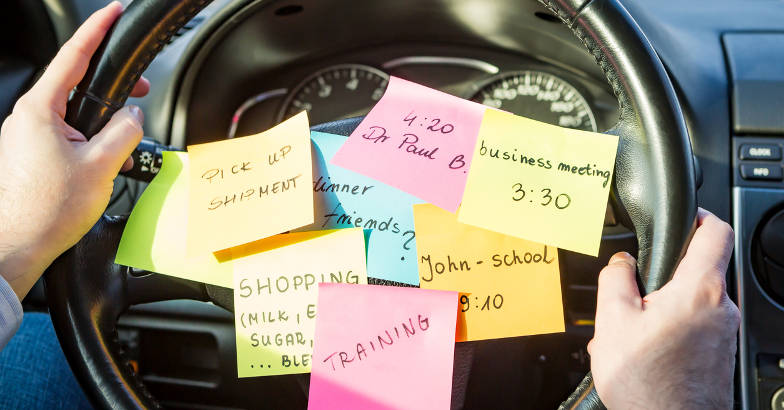 4:20
Dr Paul B.
business meeting
3:30
PICK UP
SHIPMENT
dinner
friends?
John - school
9:10
SHOPPING
(MILK, E
SUGAR,
... BLE
TRAINING
CLOCK
INFO